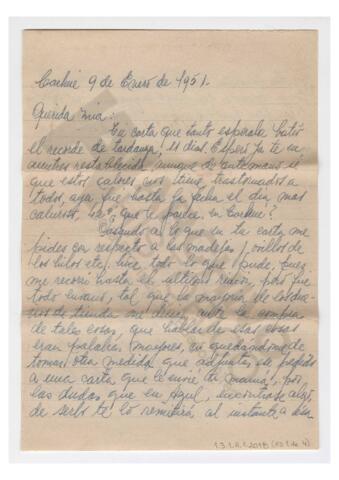 Carhué 9 de Enero de 1951.
Querida mia:
Tu carta que tanto esperaba batió
el recorde de tardanza, 11 dias. Espero ya te en
cuentres restablecida, aunque de entemano sé
que estos calores nos tiene trastornados a
todos, aya fue hasta la fecha el dia mas
caluroso, 42°, que te parece en Carhué?
Pasando a lo que en tu carta me
pides con respecto a las madejas, ovillos de
los hilos etc, hice todo lo que pude, pues
me recorrí hasta el ultimo rincon, pero fue
todo envano, tal que la mayoria de los due-
ños de tienda me dicen, ante la compra
de tales cosas, que hablar de esas cosas
eran palabras mayores, no quedandome de
tomar otra medida que adjuntar el pedido
a una carta que le envie tu mama, por
las dudas que en Azul, encontrase algo,
de serlo te lo remitirá al instante a esa
1.3.1.A.1.2018 (fo 1 de 4)